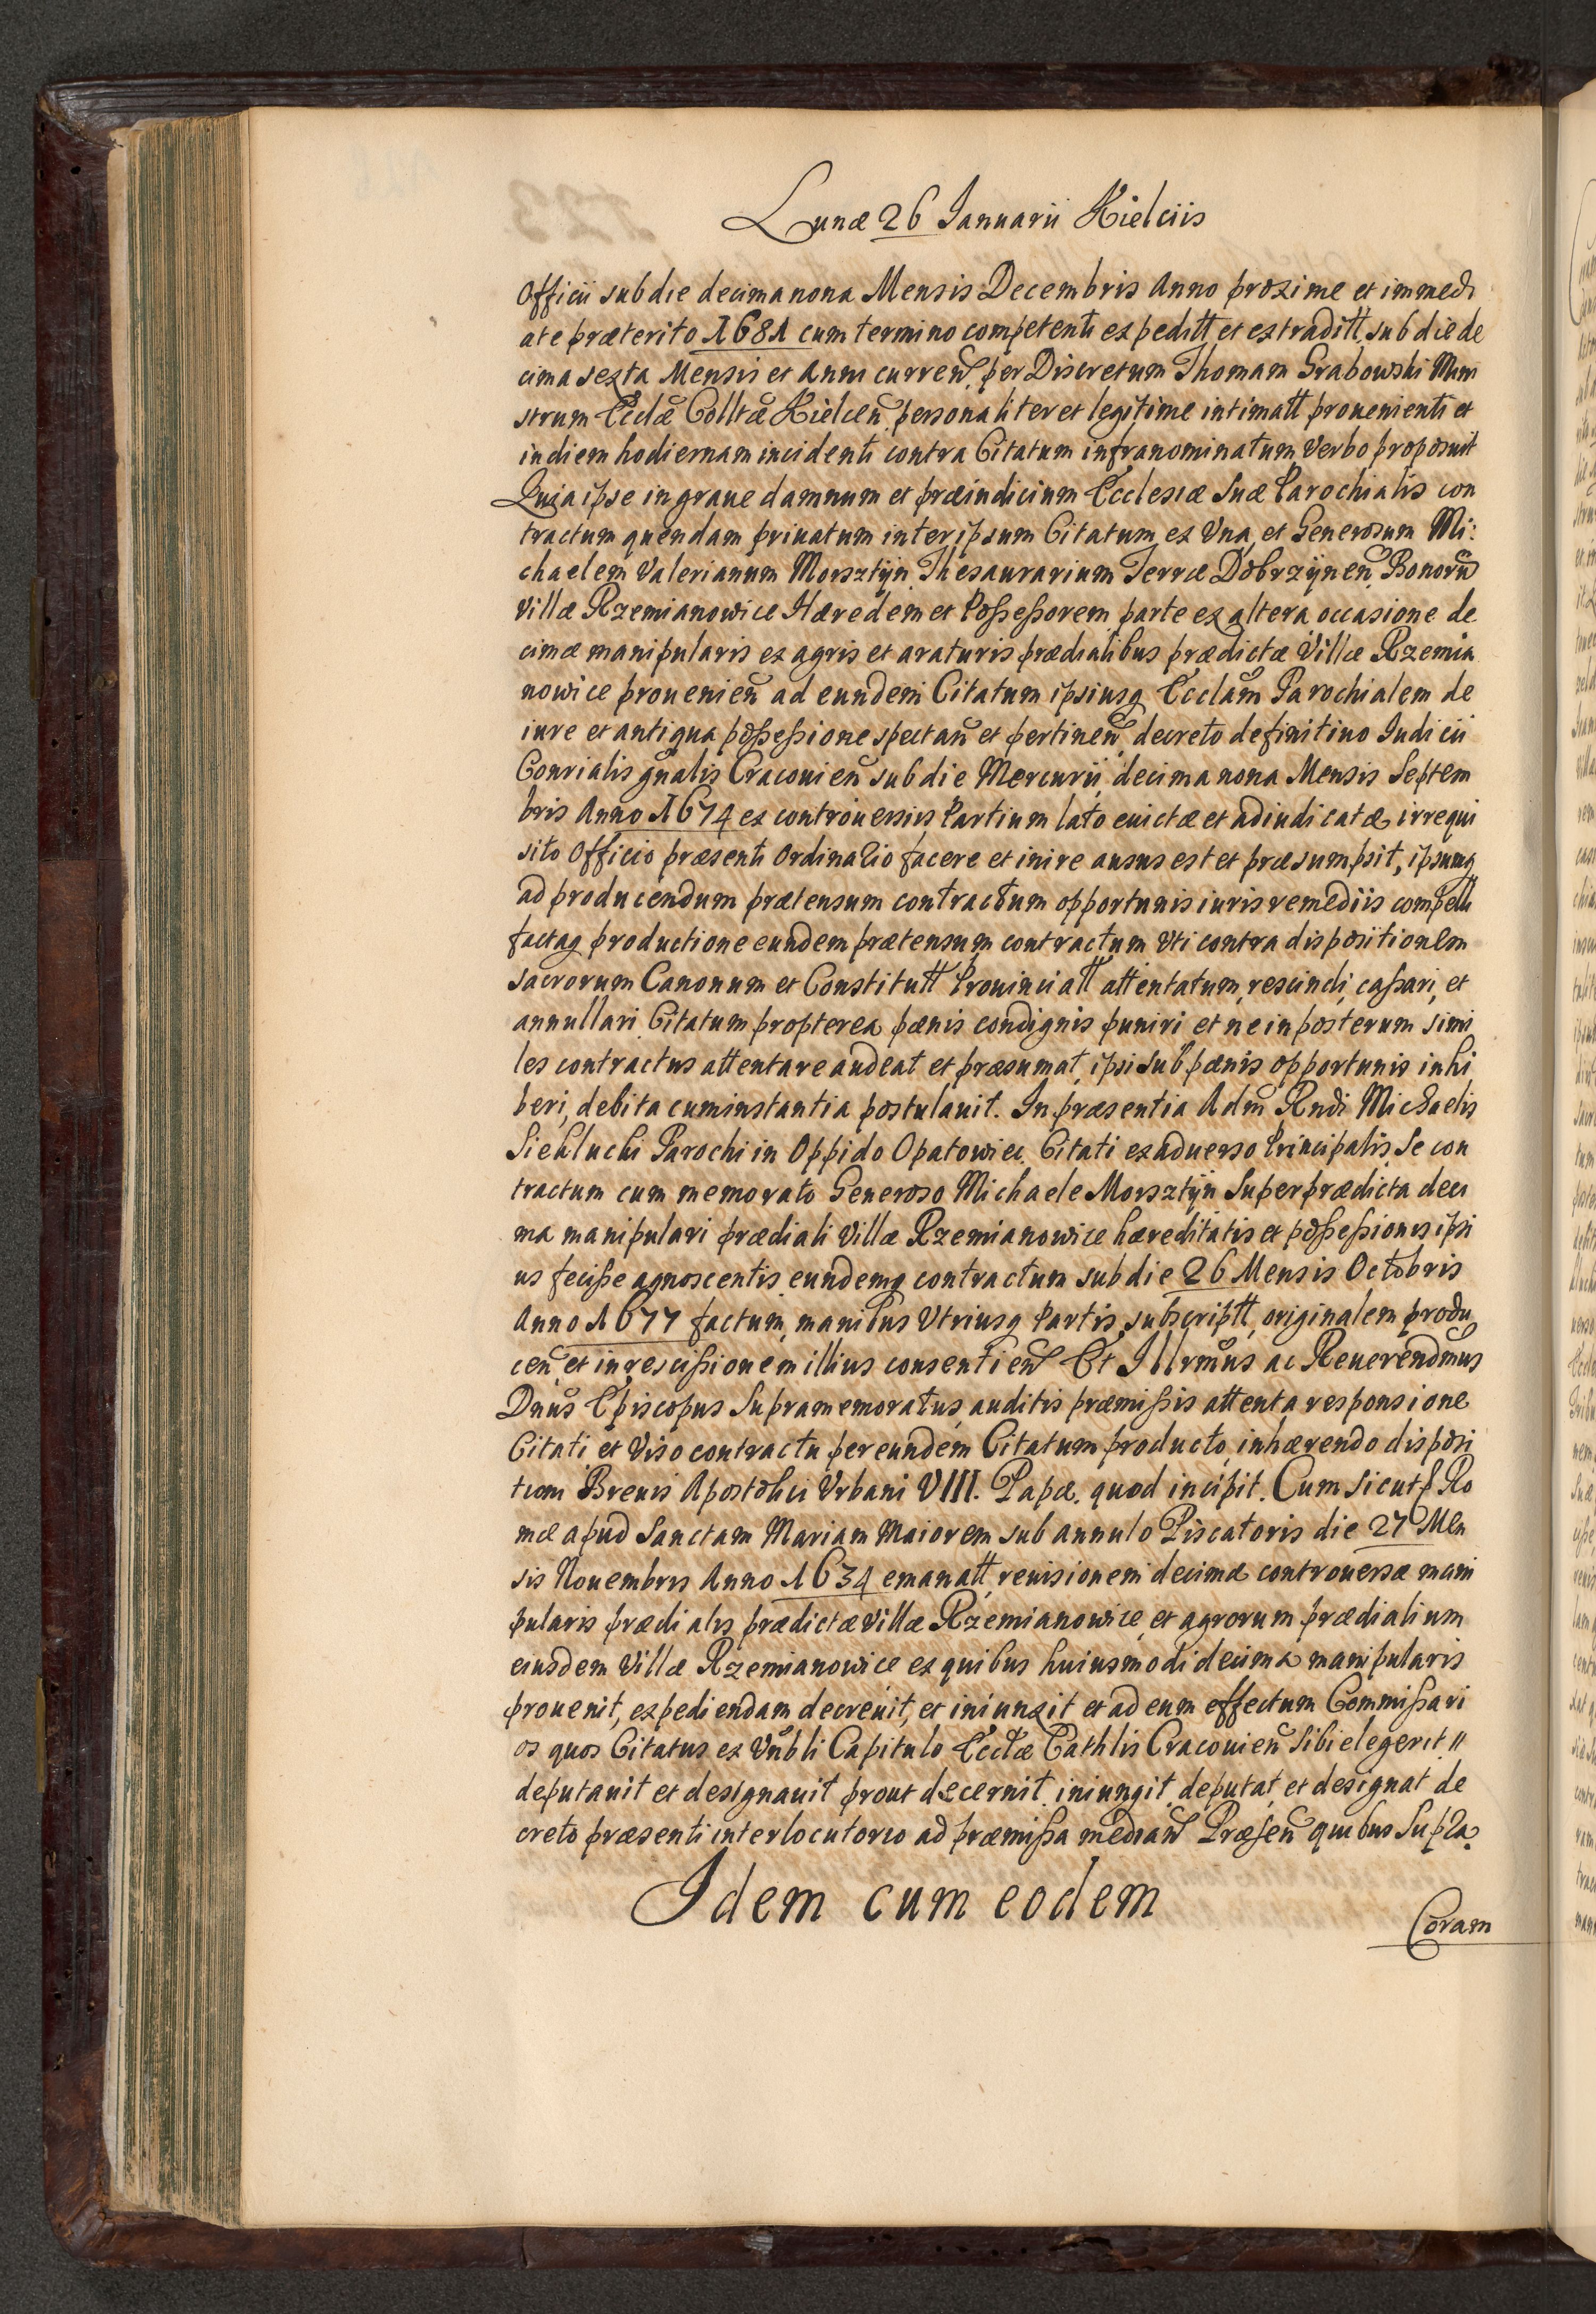 Lunæ 26 Januarii Kielciis
Officii sub die decima nona Mensis Decembris Anno proxime et immedi
ate præterito 1681 cum termino competenti expeditt et extraditt, sub die de
cima sexta Mensis et Anni curreñ, per Discretum Thomam Grabowski Mini
strum Ecclæ Colltæ Kielceñ, personaliter et legitime intimatt prouenienti et
in diem hodiernam incidenti contra Citatum infranominatum Verbo proposuit
Quia ipse in graue damnum et præiudicium Ecclesiæ Suæ Parochialis con
tractum quendam priuatum inter ipsum Citatum ex Vna, et Generosum Mi:
chaelem Valerianum Morsztÿn Thesaurarium Terræ Dobrzÿneñ, Bonorũ
Villæ Rzemianowice Hæredem et Possessorem parte ex altera occasione de
cimæ manipularis ex agris et araturis prædialibus prædictæ Villæ Rzemia
nowice prouenieñ ad eundem Citatum ipsiusq Ecclãm Parochialem de
iure et antiqua possessione spectañ et pertineñ, decreto definitiuo Judicii
Conrialis gñalis Cracouieñ sub die Mercurii decima nona Mensis Septem
bris Anno 1674 ex controuersiis Partium lato euictæ et adiudicatæ, irrequi
sito Officio præsenti Ordinario facere et inire ausus est et præsumpsit, ipsumq
ad producendum prætensum contractum opportunis iuris remediis compelli
factaq productione eundem prætensum contractum Vti contra dispositionem
sacrorum Canonum et Constitutt Prouinciatt attentatum, rescindi, cassari, et
annullari Citatum propterea pænis condignis puniri et ne in posterum simi
les contractus attentare audeat et præsumat, ipsi sub pænis opportunis inhi
beri, debita cum instantia postulauit. In præsentia Adm̃ Rñdi Michaelis
Siekluchi Parochi in Oppido Opatowiec Citati ex aduerso Principalis, Se con
tractum cum memorato Generoso Michaele Morsztÿn Super prædicta deci
ma manipulari prædiali Villæ Rzemianowice hæreditatis et possessionis ipsi
us fecisse agnoscentis, eundemq contractum sub die 26 Mensis Octobris
Anno 1677 factum, manibus Vtriusq Partis, subscriptt, originalem produ
ceñ, et in rescissionem illius consentieñ Et Illrmũs ac Reuerendm̃us
Dnũs Episcopus Supramemoratus, auditis præmissis attenta responsione
Citati et Viso contractu per eundem Citatum producto, inhærendo disposi
tioni Breuis Apostolici Vrbani VIII. Papæ. quod incipit. Cum Sicut Ro
mæ apud Sanctam Mariam Maiorem sub annulo Piscatoris die 27 Men
sis Nouembris Anno 1634 emanatt, reuisionem decimæ controuersæ mani
pularis prædialis prædictæ Villæ Rzemianowice, et agrorum prædialium
eiusdem Villæ Rzemianowice ex quibus huiusmodi decima manipularis
prouenit, expediendam decreuit, et iniunxit et ad eum effectum Commissari
os quos Citatus ex Vñbli Capitulo Ecclæ Cathlis Cracouieñ Sibi elegerit //
deputauit et designauit prout decernit. iniungit, deputat, et designat de
creto præsenti interlocutorio ad præmissa mediañ Præseñ quibus Supra.
Idem cum eodem
Coram